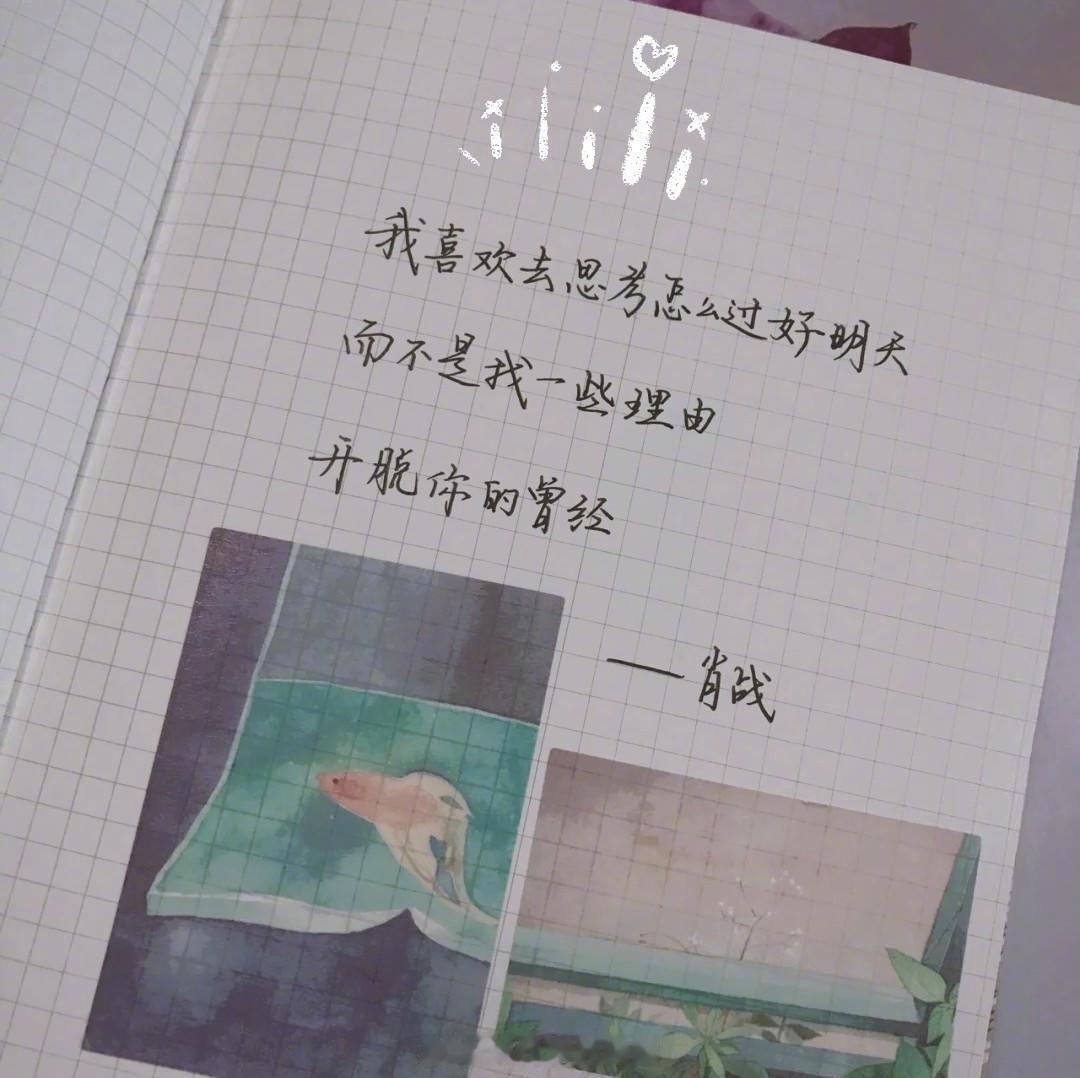 我喜欢去思考怎么过好明天
而不是找一些理由
开脱你的曾经
——肖战